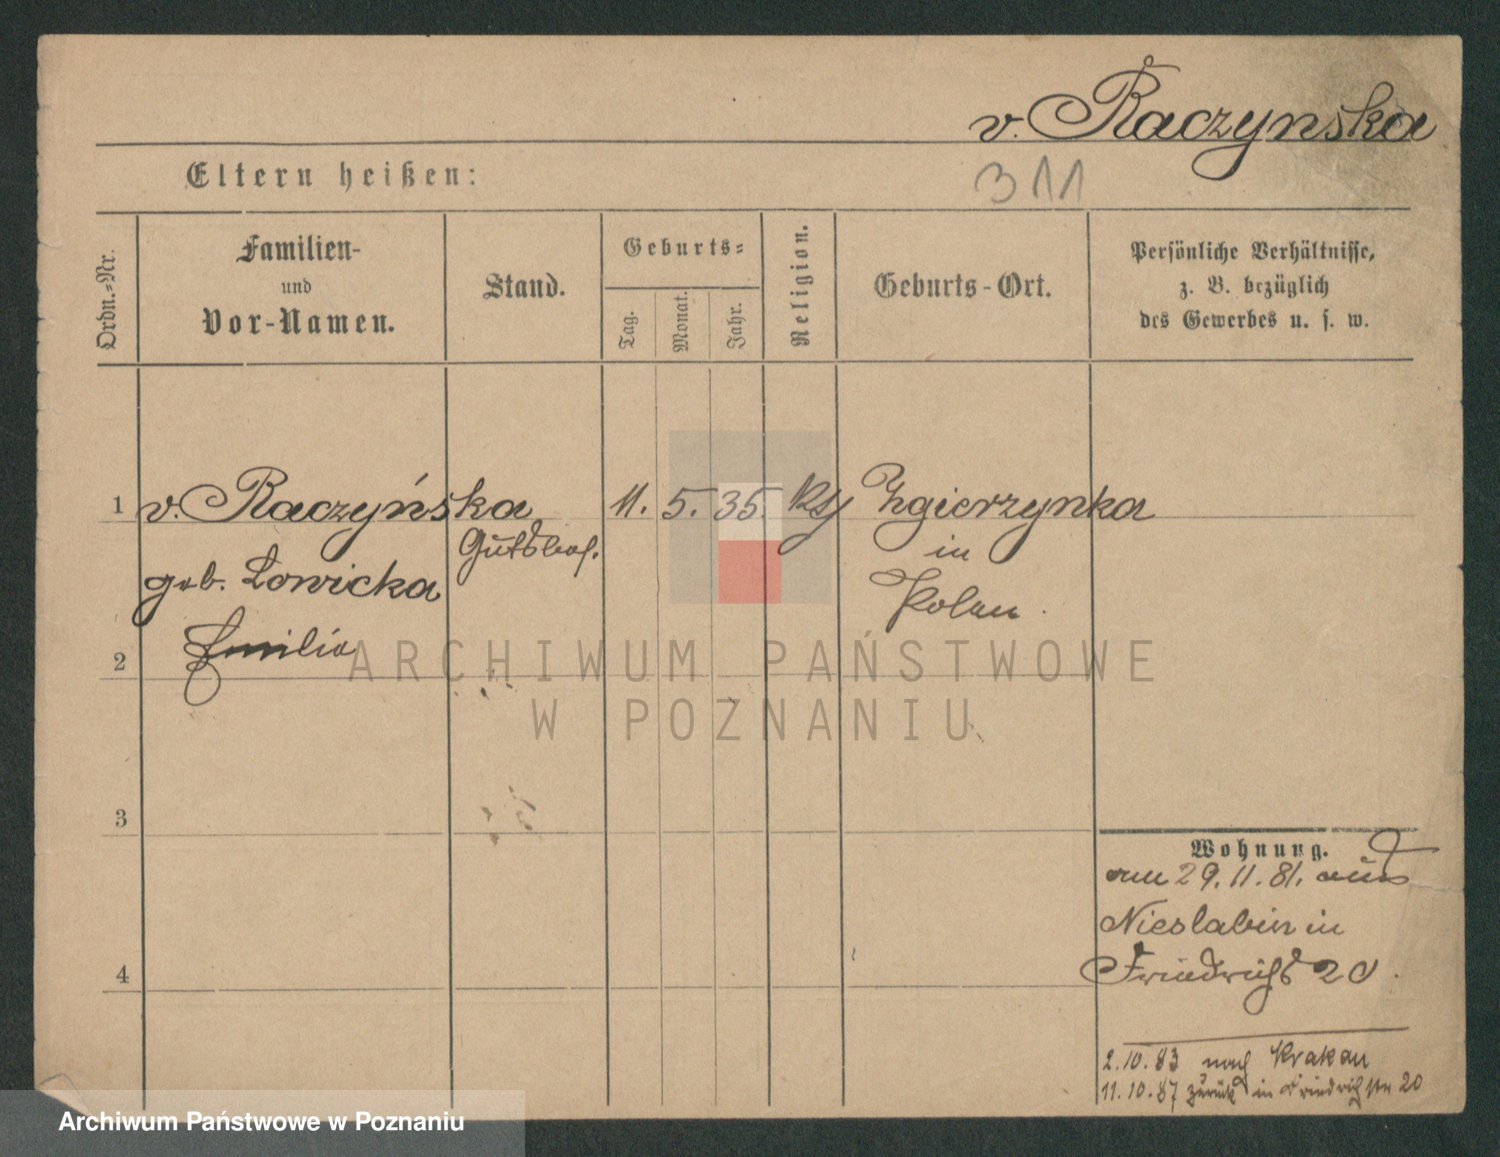 v. Raczynska
Eltern heißen:
311
Ordn.-Nr.
Familien-
und
Vor-Namen.
Stand.
Geburts-
Tag.
Monat.
Jahr.
Religion.
Geburts-Ort.
Persönliche Verhältnisse,
z. B. bezüglich
des Gewerbes u. s. w.
1 v. Raczyńska 11. 5. 35. Zgierzynka
Gutsbes.
in
geb. Lowicka
Polen
2 Emilia
ARCHIWUM PAŃSTWOWE
W POZNANIU
3
Wohnung.
am 29.11.81. aus
Nieslabin in
4 Friedrichst 20.
2.10.83 nach Krakau
11.10.87 zurück in Friedrichstr 20
Archiwum Państwowe w Poznaniu